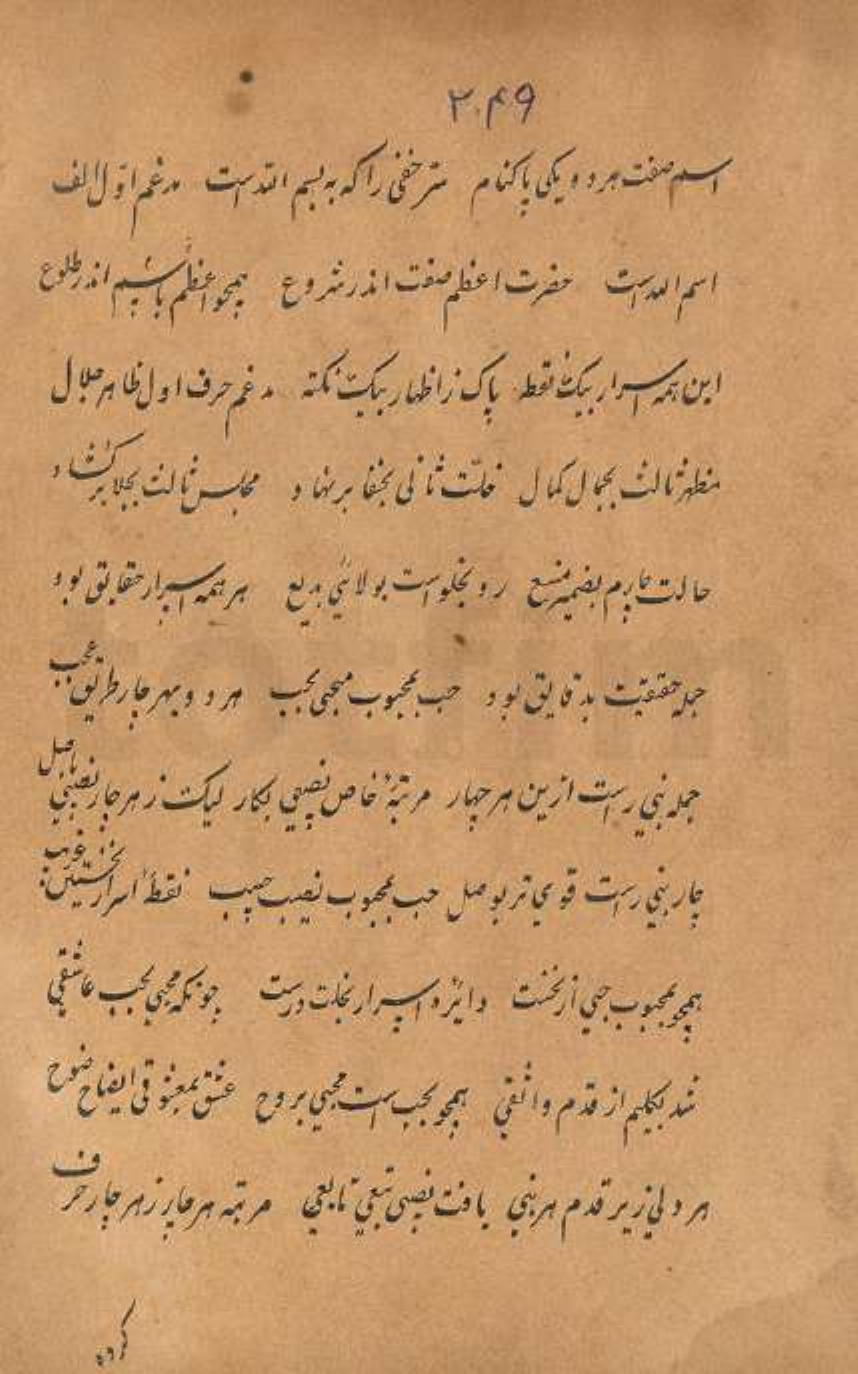 ۲۰۴۹
اسم صفت هر دو یکی پاکنام سر خفی را که به بسم الله است مدغم اول الف
اسم الله است حضرت اعظم صفت اندر شروع همچو اعظم باسم اندر طلوع
این همه اسرار بیک نقطه پاک ز اظهار بیک نکته مدغم حرف اول ظاهر جلال
مظهر ثالث بجمال کمال خلت ثانی بخفا بر نهاد مجلس ثالث بجلا بر کشاد
حالت چارم بضمیر منیع رو بخلوست بولائی بدیع هر همه اسرار حقایق بود
جمله حقیقت بدقایق بود حب بمحبوب محبی بحب هر دو بهر چار طریق عجب
جمله نبی راست ازین هر چهار مرتبهٔ خاص نصیبی بکار لیک ز هر چار نصیبی باصل
چار نبی راست قوی تر بوصل حب بمحبوب نصیب حبیب نقطهٔ اسرار نخستین غریب
همچو بمحبوب حبی از نخست دایره اسرار بخلت درست چونکه محبی بحب عاشقی
شد بکلیم از قدم واثقی همچو بحب است محبی بروح عشق بمعشوقی ایضاح ضوح
هر ولی زیر قدم هر نبی یافت نصیبی تبعی تابعی مرتبه هر چار ز هر چار حرف